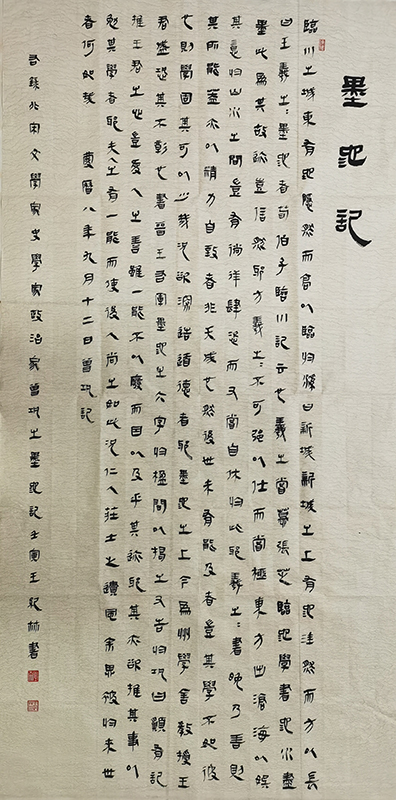 墨池記
臨川之城東有地隱然而高以臨於溪曰新城新城之上有池洼然而方以長
曰王羲之之墨池者荀伯子臨川記云也羲之嘗慕張芝臨池學書池水盡
墨此為其故跡豈信然邪方羲之之不可強以仕而嘗極東方出滄海以娛
其意於山水之間豈有徜徉肆恣而又嘗自休於此邪羲之之書晚乃善則
其所能蓋亦以精力自致者非天成也然後世未有能及者豈其學不如彼
也則學固其可以少哉況欲深造道德者邪墨池之上今為州學舍教授王
君盛恐其不彰也書晉王右軍墨池之六字於楹間以揭之又告於鞏曰願有記
推王君之心豈愛人之善雖一能不以廢而因以及乎其跡邪其亦欲推其事以
勉其學者邪夫人之有一能而使後人尚之如此況仁人莊士之遺風餘思被於來世
者何如哉 慶曆八年九月十二日曾鞏記
右錄北宋文學家史學家政治家曾鞏之墨池記壬寅王紀林書